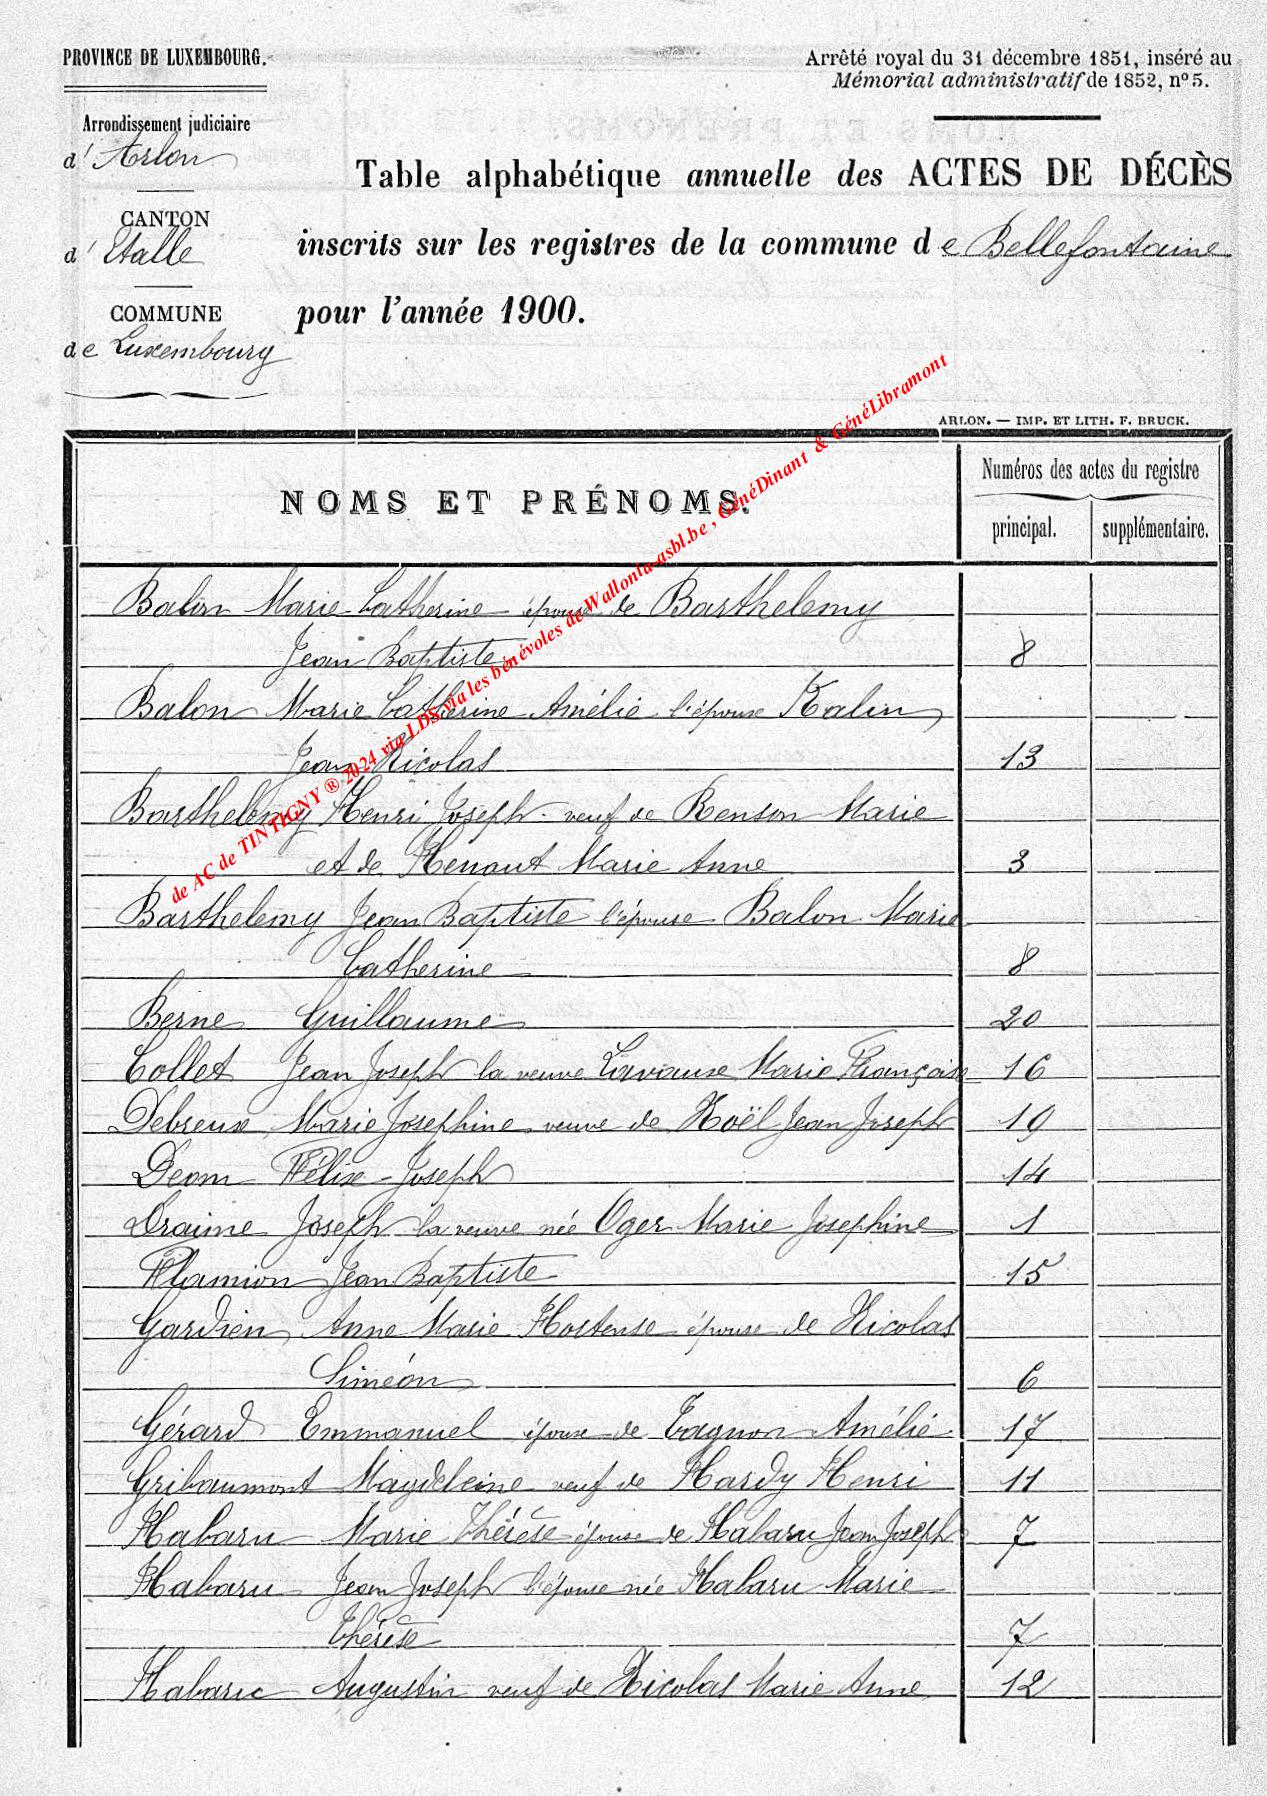 PROVINCE DE LUXEMBOURG.
Arrêté royal du 31 décembre 1851, inséré au
Mémorial administratif de 1852, nº 5.
Arrondissement judiciaire
d' Arlon
CANTON
d' Etalle
COMMUNE
de Luxembourg
Table alphabétique annuelle des ACTES DE DÉCÈS
inscrits sur les registres de la commune de Bellefontaine
pour l'année 1900.
ARLON. — IMP. ET LITH. F. BRUCK.
NOMS ET PRÉNOMS.
Numéros des actes du registre
principal. supplémentaire.
de AC de TINTIGNY ® 2024 via LDS via les bénévoles de Wallonia-asbl.be , GénéDinant & GénéLibramont
Balon Marie Catherine épouse de Barthelemy
Jean Baptiste 8
Balon Marie Catherine Amélie l'épouse Kalin
Jean Nicolas 13
Barthelemy Henri Joseph veuf de Renson Marie
et de Henout Marie Anne 3
Barthelemy Jean Baptiste l'épouse Balon Marie
Catherine 8
Berne Guillaume 20
Collet Jean Joseph la veuve Marie Françoise 16
Debreux Marie Josephine veuve de Noël Jean Joseph 19
Deom Félix-Joseph 14
Draime Joseph la veuve née Oger Marie Josephine 1
Flamion Jean Baptiste 15
Gardien Anne Marie Hortense épouse de Nicolas
Siméon 6
Gérard Emmanuel époux de Tagnon Amélie 17
Gribaumont Magdeleine veuf de Hardy Henri 11
Habaru Marie Thérèse épouse de Habaru Jean Joseph 7
Habaru Jean Joseph l'épouse née Habaru Marie
Thérèse 7
Habaru Augustin veuf de Nicolas Marie Anne 12